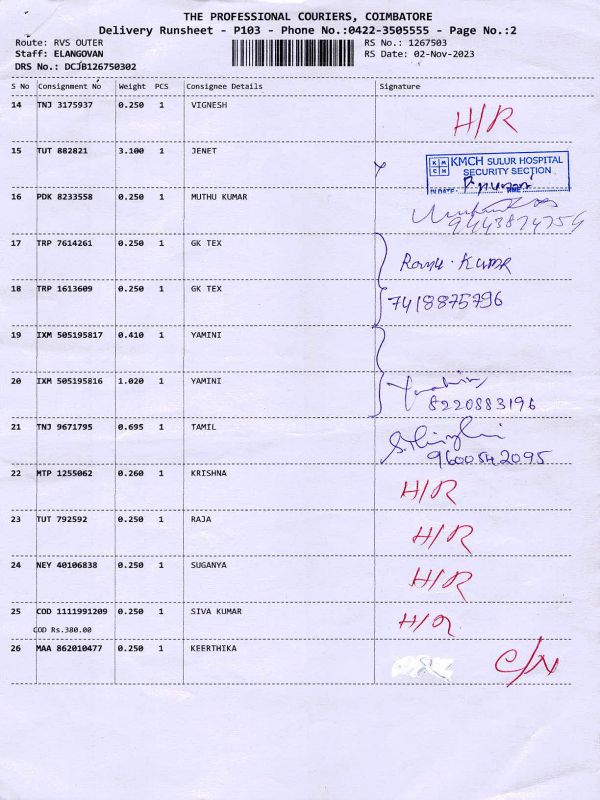 THE PROFESSIONAL COURIERS, COIMBATORE
Delivery Runsheet - P103 - Phone No.:0422-3505555 - Page No.:2
Route: RVS OUTER RS No.: 1267503
Staff: ELANGOVAN RS Date: 02-Nov-2023
DRS No.: DCJB126750302
S No Consignment No Weight PCS Consignee Details Signature
14 TNJ 3175937 0.250 1 VIGNESH H/R
15 TUT 882821 3.100 1 JENET
KMCH SULUR HOSPITAL
SECURITY SECTION
IN DATE: TIME:
16 PDK 8233558 0.250 1 MUTHU KUMAR
17 TRP 7614261 0.250 1 GK TEX
Kumar
18 TRP 1613609 0.250 1 GK TEX 7418875796
19 IXM 505195817 0.410 1 YAMINI
20 IXM 505195816 1.020 1 YAMINI
8220883196
21 TNJ 9671795 0.695 1 TAMIL
9600542095
22 MTP 1255062 0.260 1 KRISHNA H/R
23 TUT 792592 0.250 1 RAJA H/R
24 NEY 40106838 0.250 1 SUGANYA H/R
25 COD 1111991209 0.250 1 SIVA KUMAR H/R
COD Rs.380.00
26 MAA 862010477 0.250 1 KEERTHIKA C/N